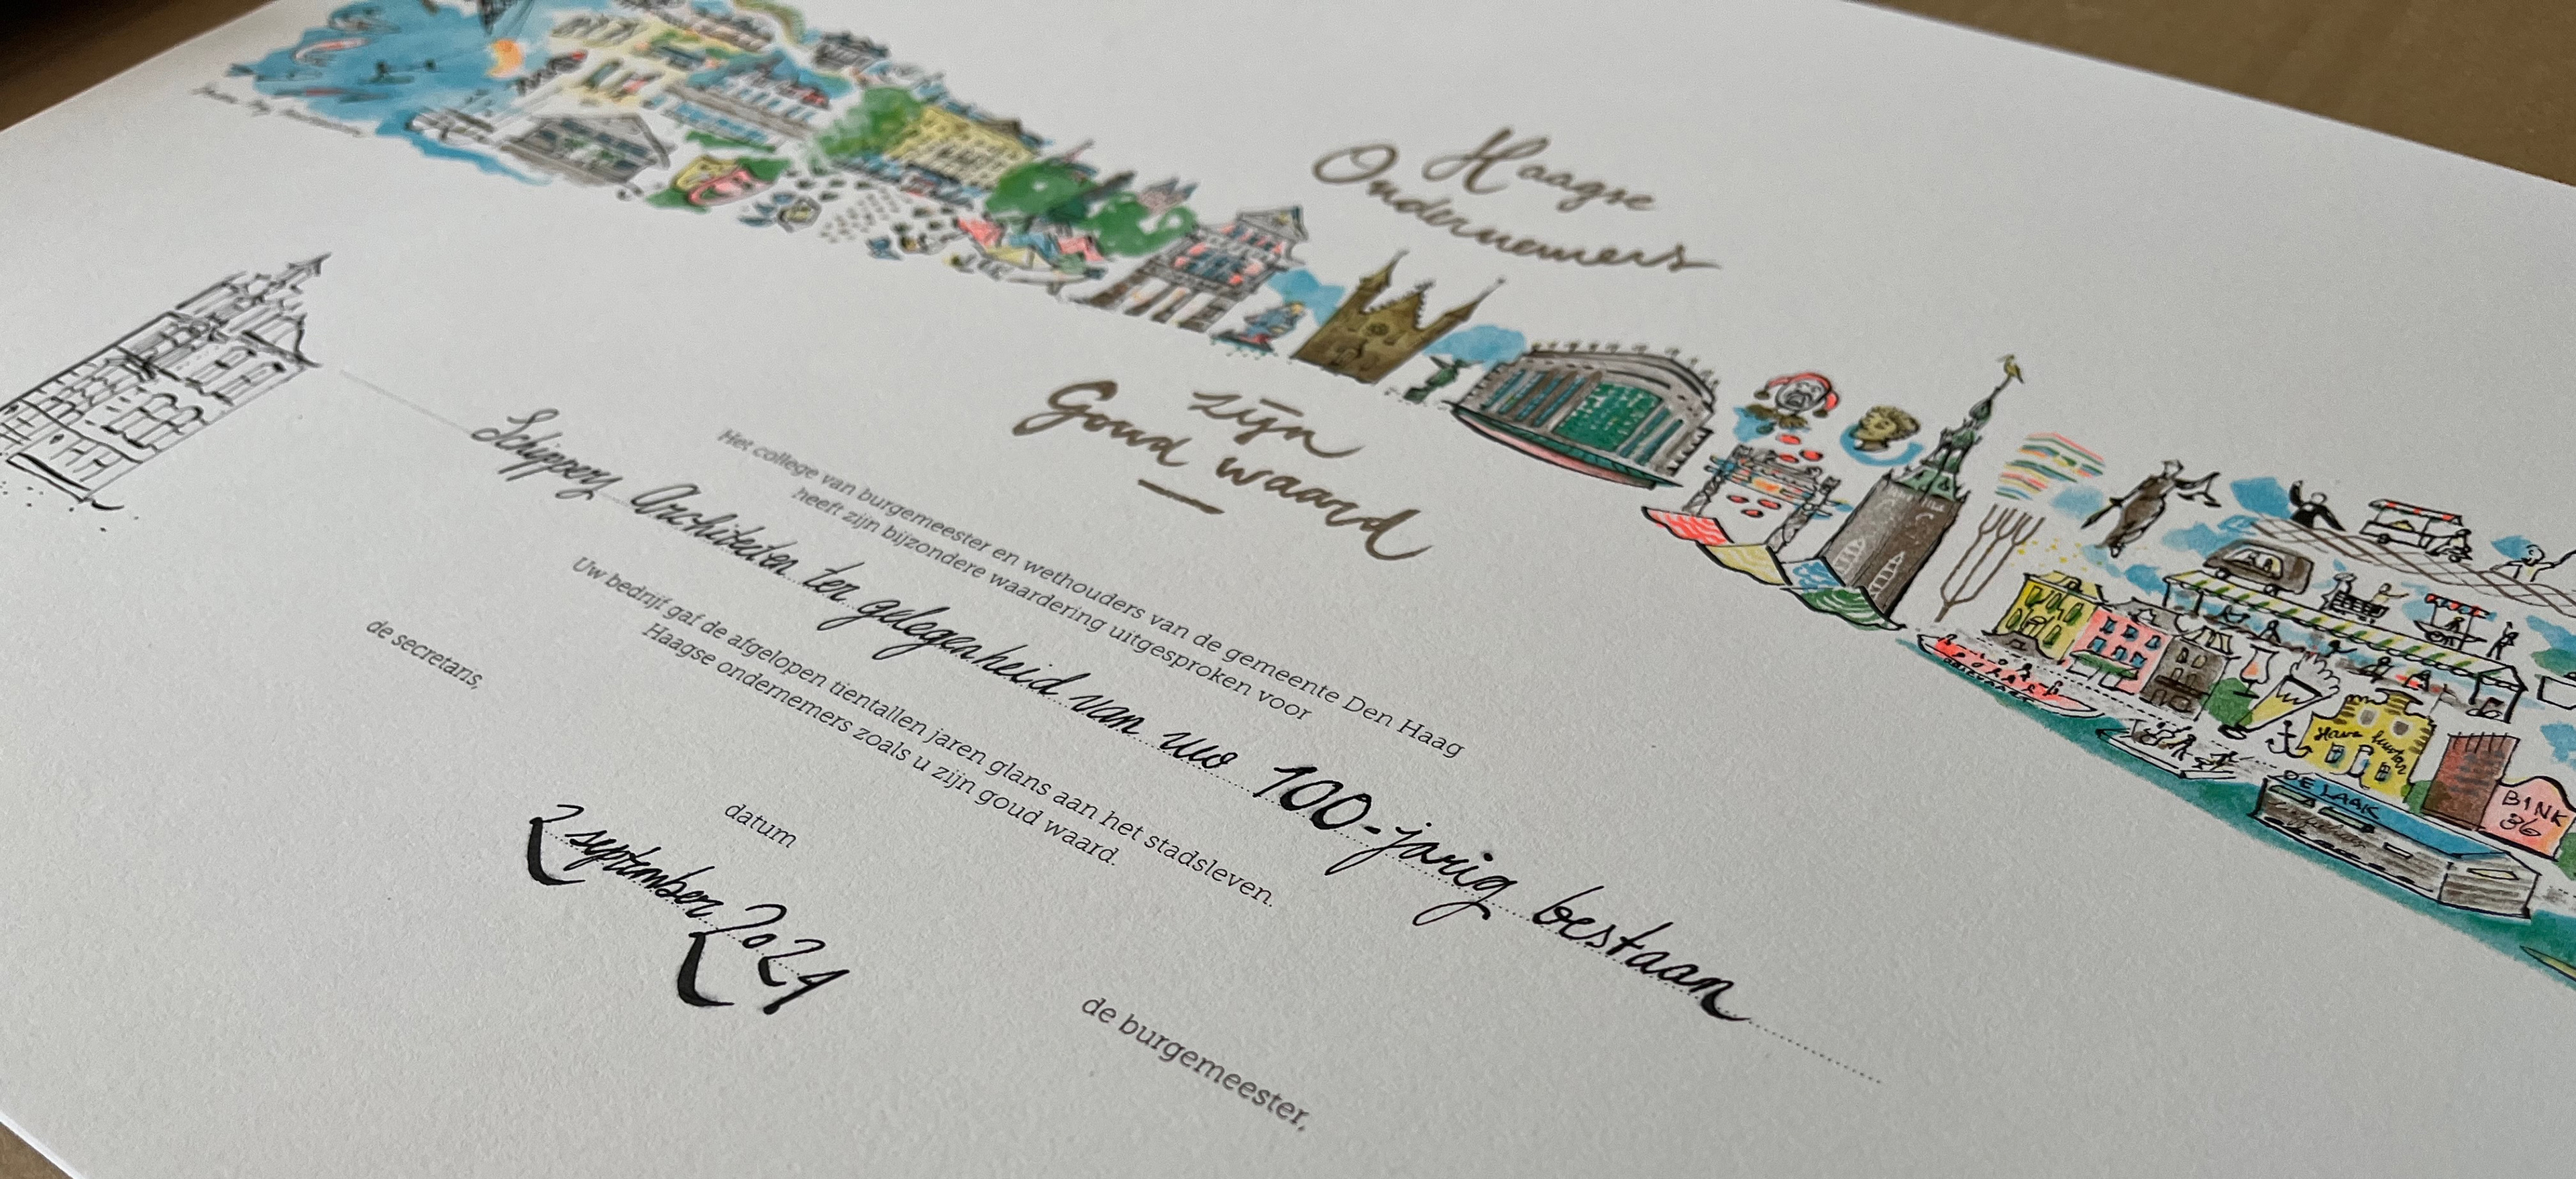 Haagse
Ondernemers
zijn
Goud waard
Het college van burgemeester en wethouders van de gemeente Den Haag
heeft zijn bijzondere waardering uitgesproken voor
Schippers Architecten ter gelegenheid van uw 100-jarig bestaan
Uw bedrijf gaf de afgelopen tientallen jaren glans aan het stadsleven.
Haagse ondernemers zoals u zijn goud waard.
de secretaris,
datum
2 september 2024
de burgemeester,
DE LAAK
BINK
36